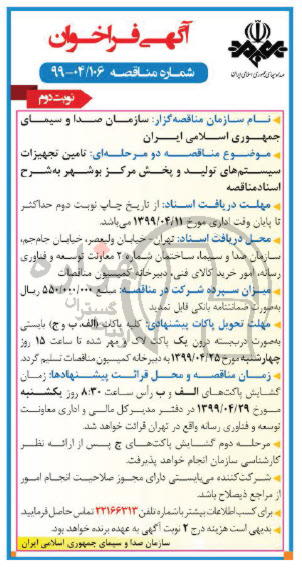 آگهی فراخوان
صدا و سیمای جمهوری اسلامی ایران
شماره مناقصه ۹۹-۰۴/۱۰۶
نوبت دوم
نام سازمان مناقصه‌گزار: سازمان صدا و سیمای
جمهوری اسلامی ایران
موضوع مناقصه دو مرحله‌ای: تامین تجهیزات
سیستم‌های تولید و پخش مرکز بوشهر به‌شرح
اسناد مناقصه
مهلت دریافت اسناد: از تاریخ چاپ نوبت دوم حداکثر
تا پایان وقت اداری مورخ ۱۳۹۹/۰۴/۱۱ می‌باشد.
محل دریافت اسناد: تهران - خیابان ولیعصر، خیابان جام‌جم،
سازمان صدا و سیما، ساختمان شماره ۲ معاونت توسعه و فناوری
رسانه، امور خرید کالای فنی، دبیرخانه کمیسیون مناقصات
میزان سپرده شرکت در مناقصه: مبلغ ۵۵۰/۰۰۰/۰۰۰ ریال
به‌صورت ضمانتنامه بانکی قابل تمدید
مهلت تحویل پاکات پیشنهادی: کلیه پاکات (الف، ب و ج) بایستی
به‌صورت دربسته درون یک پاکت لاک و مهر شده تا ساعت ۱۵ روز
چهارشنبه مورخ ۱۳۹۹/۰۴/۲۵ به دبیرخانه کمیسیون مناقصات تسلیم گردد.
زمان مناقصه و محل قرائت پیشنهادها: زمان
گشایش پاکت‌های الف و ب رأس ساعت ۸:۳۰ روز یکشنبه
مورخ ۱۳۹۹/۰۴/۲۹ در دفتر مدیرکل مالی و اداری معاونت
توسعه و فناوری رسانه واقع در تهران قرائت خواهد شد.
مرحله دوم گشایش پاکت‌های ج پس از ارائه نظر
کارشناسی سازمان انجام خواهد پذیرفت.
شرکت‌کننده می‌بایستی دارای مجوز صلاحیت انجام امور
از مراجع ذیصلاح باشد.
برای کسب اطلاعات بیشتر با شماره تلفن ۲۲۱۶۶۳۱۳ تماس حاصل فرمایید.
بدیهی است هزینه درج ۲ نوبت آگهی به عهده برنده خواهد بود.
سازمان صدا و سیمای جمهوری اسلامی ایران